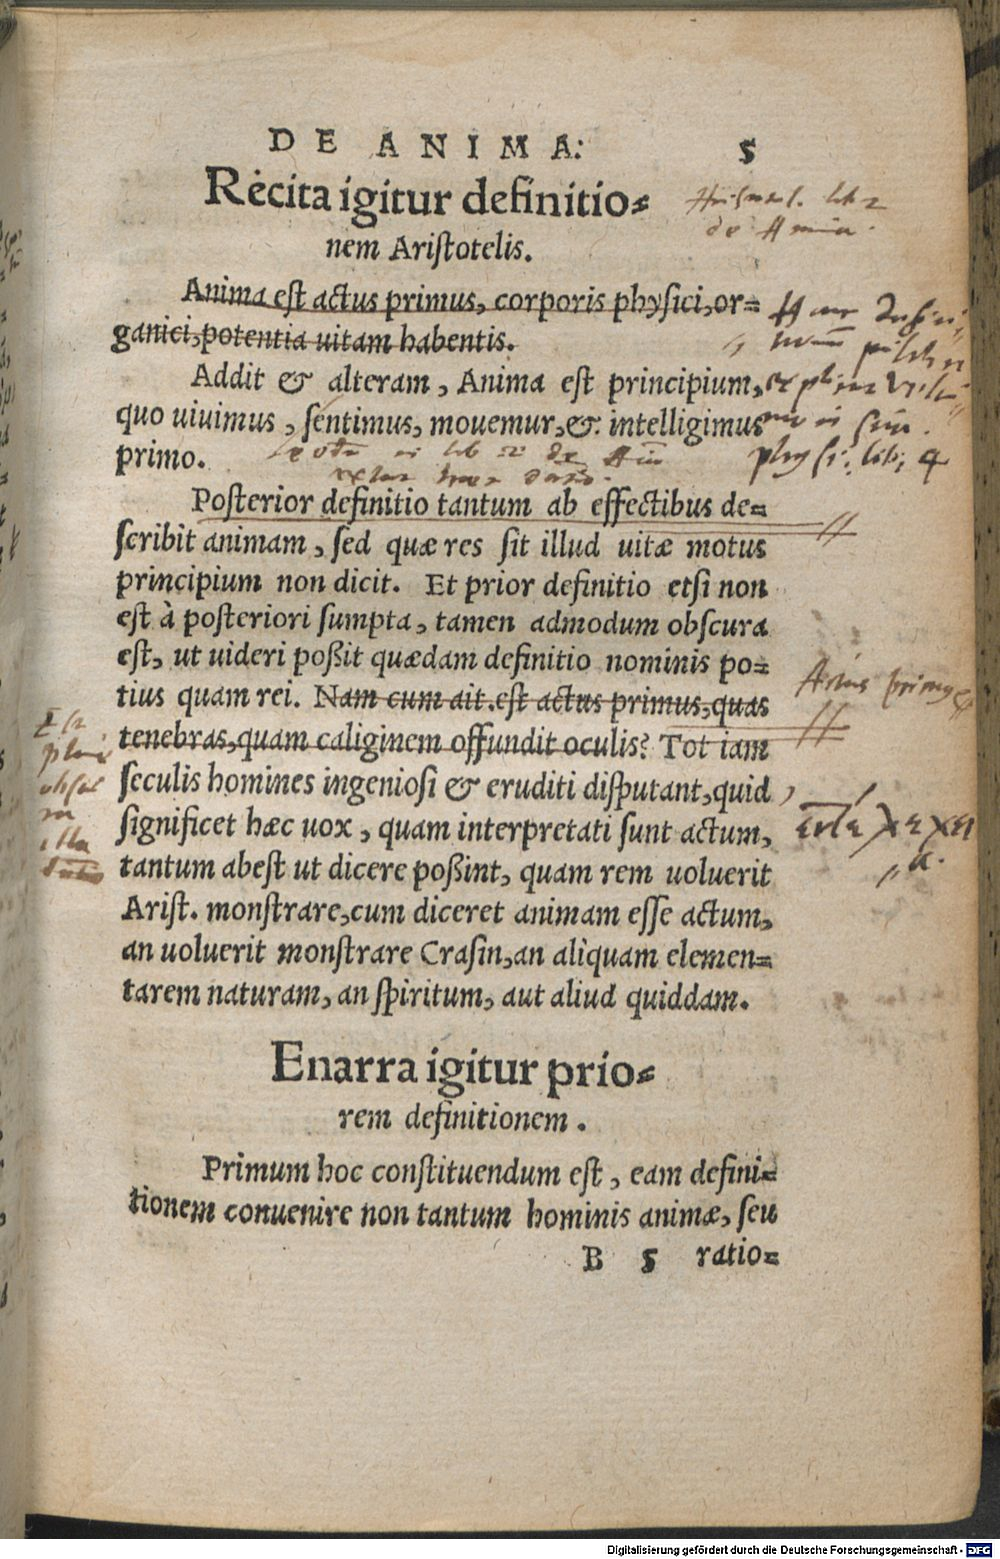 DE ANIMA: 5
Recita igitur definitio⸗
nem Ariſtotelis.
Ariſtotel. lib 2
de Anima.
Anima eſt actus primus, corporis phyſici, or⸗
ganici, potentia uitam habentis.
Addit & alteram, Anima eſt principium,
quo uiuimus, ſentimus, mouemur, & intelligimus
primo.
phyſi: lib: 4
Poſterior definitio tantum ab effectibus de⸗
ſcribit animam, ſed quæ res ſit illud uitæ motus
principium non dicit. Et prior definitio etſi non
eſt à poſteriori ſumpta, tamen admodum obſcura
eſt, ut uideri poßit quædam definitio nominis po⸗
tius quam rei. Nam cum ait, eſt actus primus, quas
Actus primus
tenebras, quam caliginem offundit oculis? Tot iam
ſeculis homines ingenioſi & eruditi diſputant, quid
ſignificet hæc uox, quam interpretati ſunt actum,
tantum abeſt ut dicere poßint, quam rem uoluerit
Ariſt. monſtrare, cum diceret animam eſſe actum,
an uoluerit monſtrare Craſin, an aliquam elemen⸗
tarem naturam, an ſpiritum, aut aliud quiddam.
Enarra igitur prio⸗
rem definitionem.
Primum hoc conſtituendum eſt, eam defini⸗
tionem conuenire non tantum hominis animæ, ſeu
B 5 ratio⸗
Digitalisierung gefördert durch die Deutsche Forschungsgemeinschaft - DFG